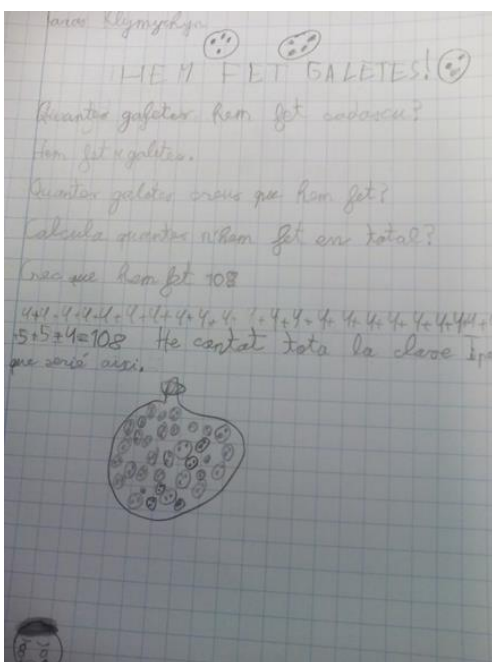 HEM FET GALETES!
Quantes galetes hem fet cadascu?
Hem fet galetes.
Quantes galetes creus que hem fet?
Calcula quantes n'hem fet en total?
Crec que hem fet 108
+5+5+4=108 He contat tota la clase I
que serié aixi.